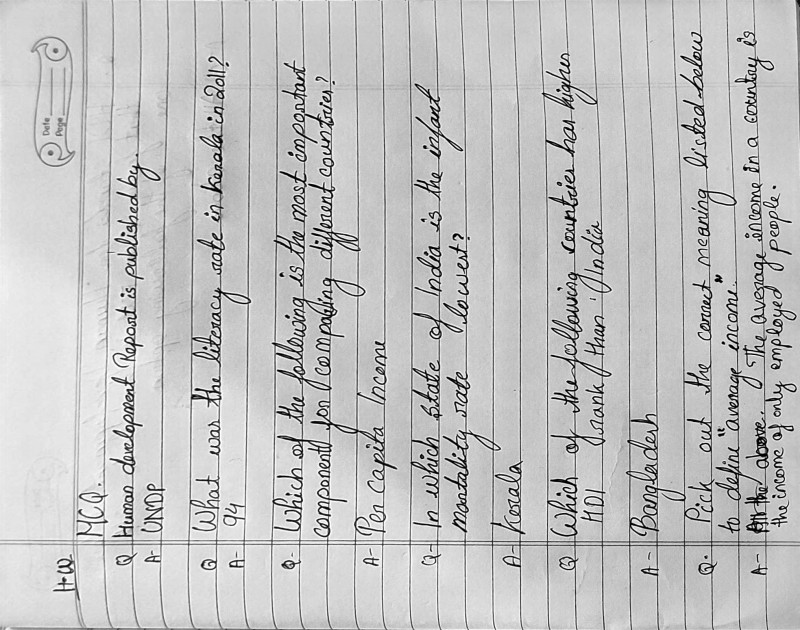 Date
Page
H.W
MCQ.
Q Human development Report is published by.
A- UNDP
Q What was the literacy rate in Kerala in 2011?
A- 94
Q- Which of the following is the most important
component for comparing different countries?
A- Per Capita Income
Q- In which state of India is the infant
mortality rate lowest?
A- Kerala
Q Which of the following countries has higher
HDI rank than India
A- Bangladesh
Q. Pick out the correct meaning listed below
to define "average income."
A- All the above. The average income in a country is
the income of only employed people.